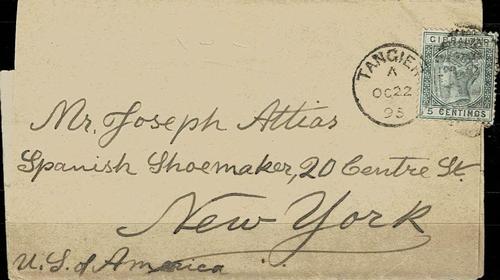 GIBRALTAR
5 CENTIMOS
TANGIER
A
OC 22
95
Mr. Joseph Attias
Spanish Shoemaker, 20 Centre St.
New York
U.S. of America